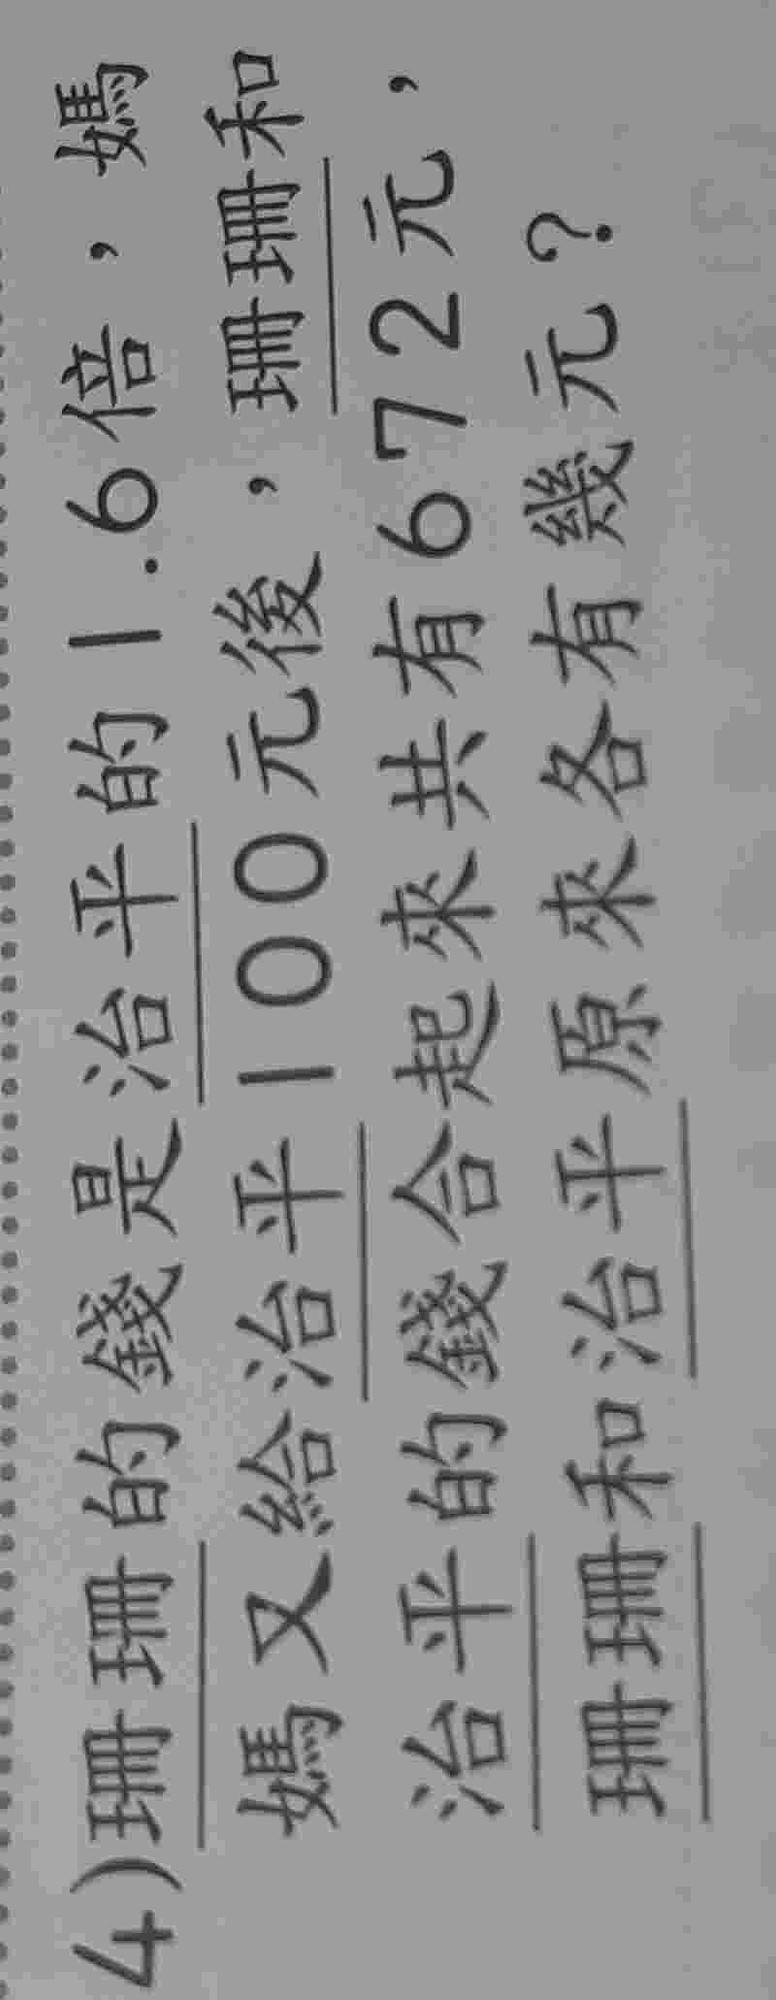 4)珊珊的錢是治平的1.6倍，媽
媽又給治平100元後，珊珊和
治平的錢合起來共有672元，
珊珊和治平原來各有幾元？